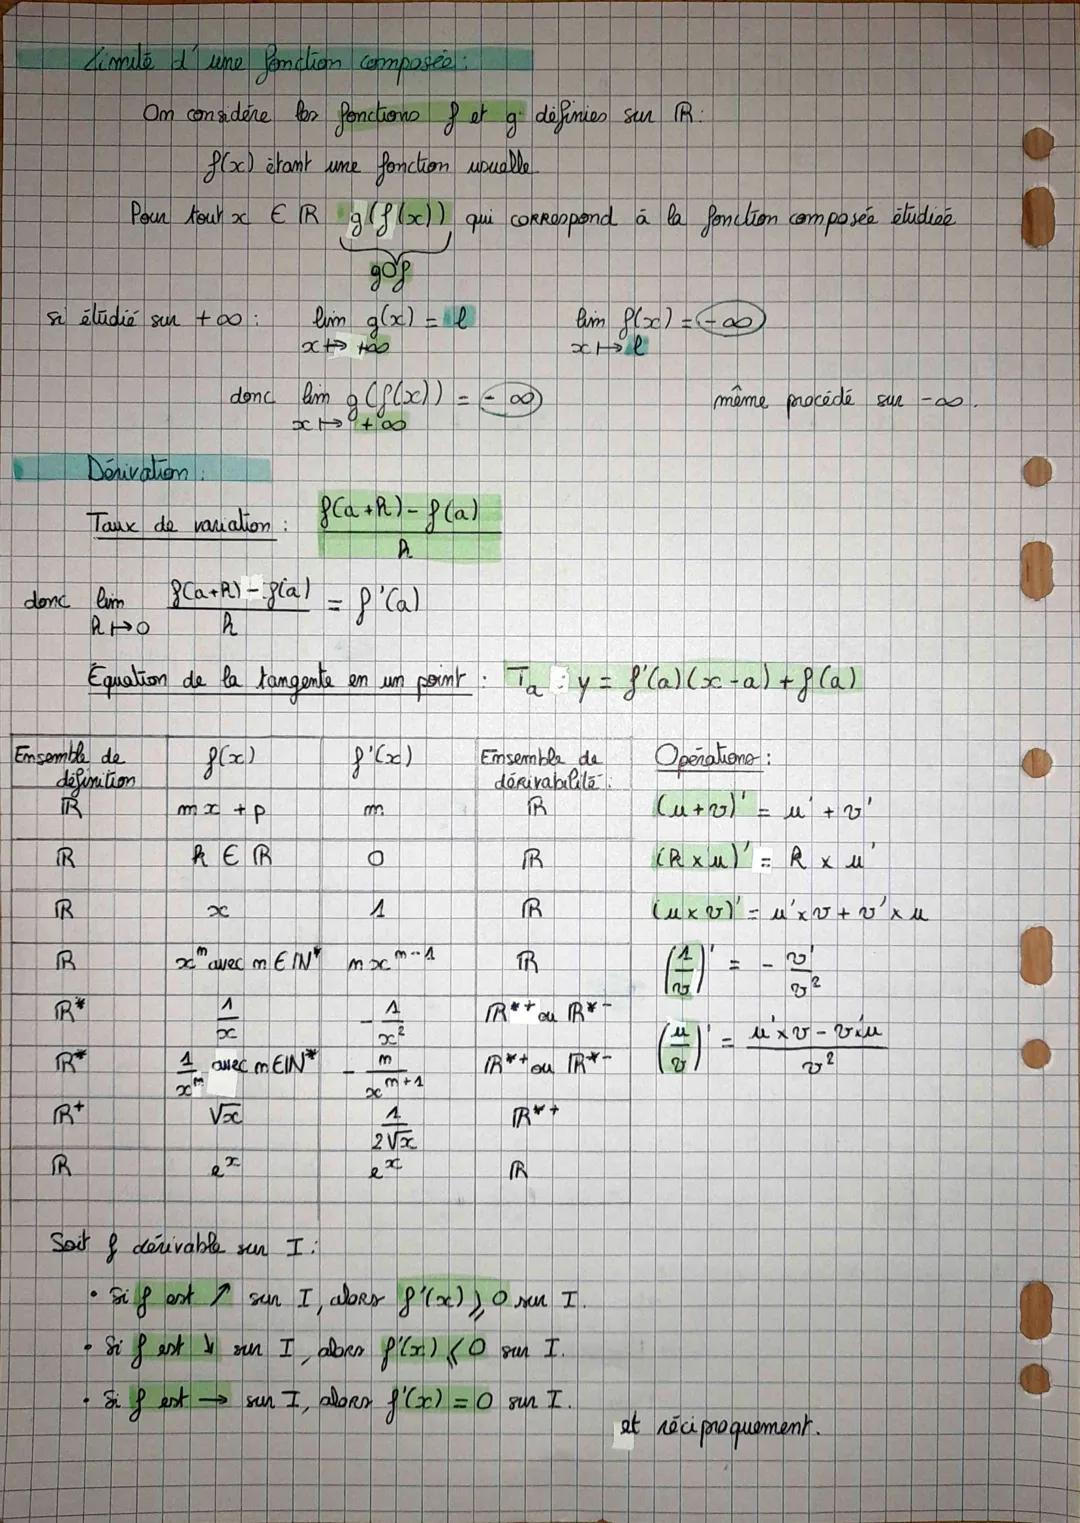 Limite d'une fonction composée :
On considère les fonctions f et g définies sur ℝ :
f(x) étant une fonction usuelle.
Pour tout x ∈ ℝ g(f(x)) qui correspond à la fonction composée étudiée
g∘f
si étudié sur +∞ : lim g(x) = l lim f(x) = -∞
x ↦ +∞ x ↦ l
donc lim g(f(x)) = -∞ même procédé sur -∞.
x ↦ +∞
Dérivation :
Taux de variation : (f(a+h) - f(a))/h
donc lim (f(a+h) - f(a))/h = f'(a)
h ↦ 0
Équation de la tangente en un point : Ta : y = f'(a)(x-a) + f(a)
Ensemble de définition f(x) f'(x) Ensemble de dérivabilité : Opérations :
ℝ mx + p m ℝ (u+v)' = u' + v'
ℝ k ∈ ℝ 0 ℝ (k x u)' = k x u'
ℝ x 1 ℝ (u x v)' = u' x v + v' x u
ℝ xⁿ avec n ∈ ℕ* nxⁿ⁻¹ ℝ (1/v)' = - v'/v²
ℝ* 1/x - 1/x² ℝ*+ ou ℝ*- (u/v)' = (u' x v - v' x u)/v²
ℝ* 1/xⁿ avec n ∈ ℕ* - n/xⁿ⁺¹ ℝ*+ ou ℝ*-
ℝ+ √x 1/(2√x) ℝ*+
ℝ eˣ eˣ ℝ
Soit f dérivable sur I :
• Si f est ↗ sur I, alors f'(x) ⩾ 0 sur I.
• Si f est ↘ sur I, alors f'(x) ⩽ 0 sur I.
• Si f est → sur I, alors f'(x) = 0 sur I.
et réciproquement.